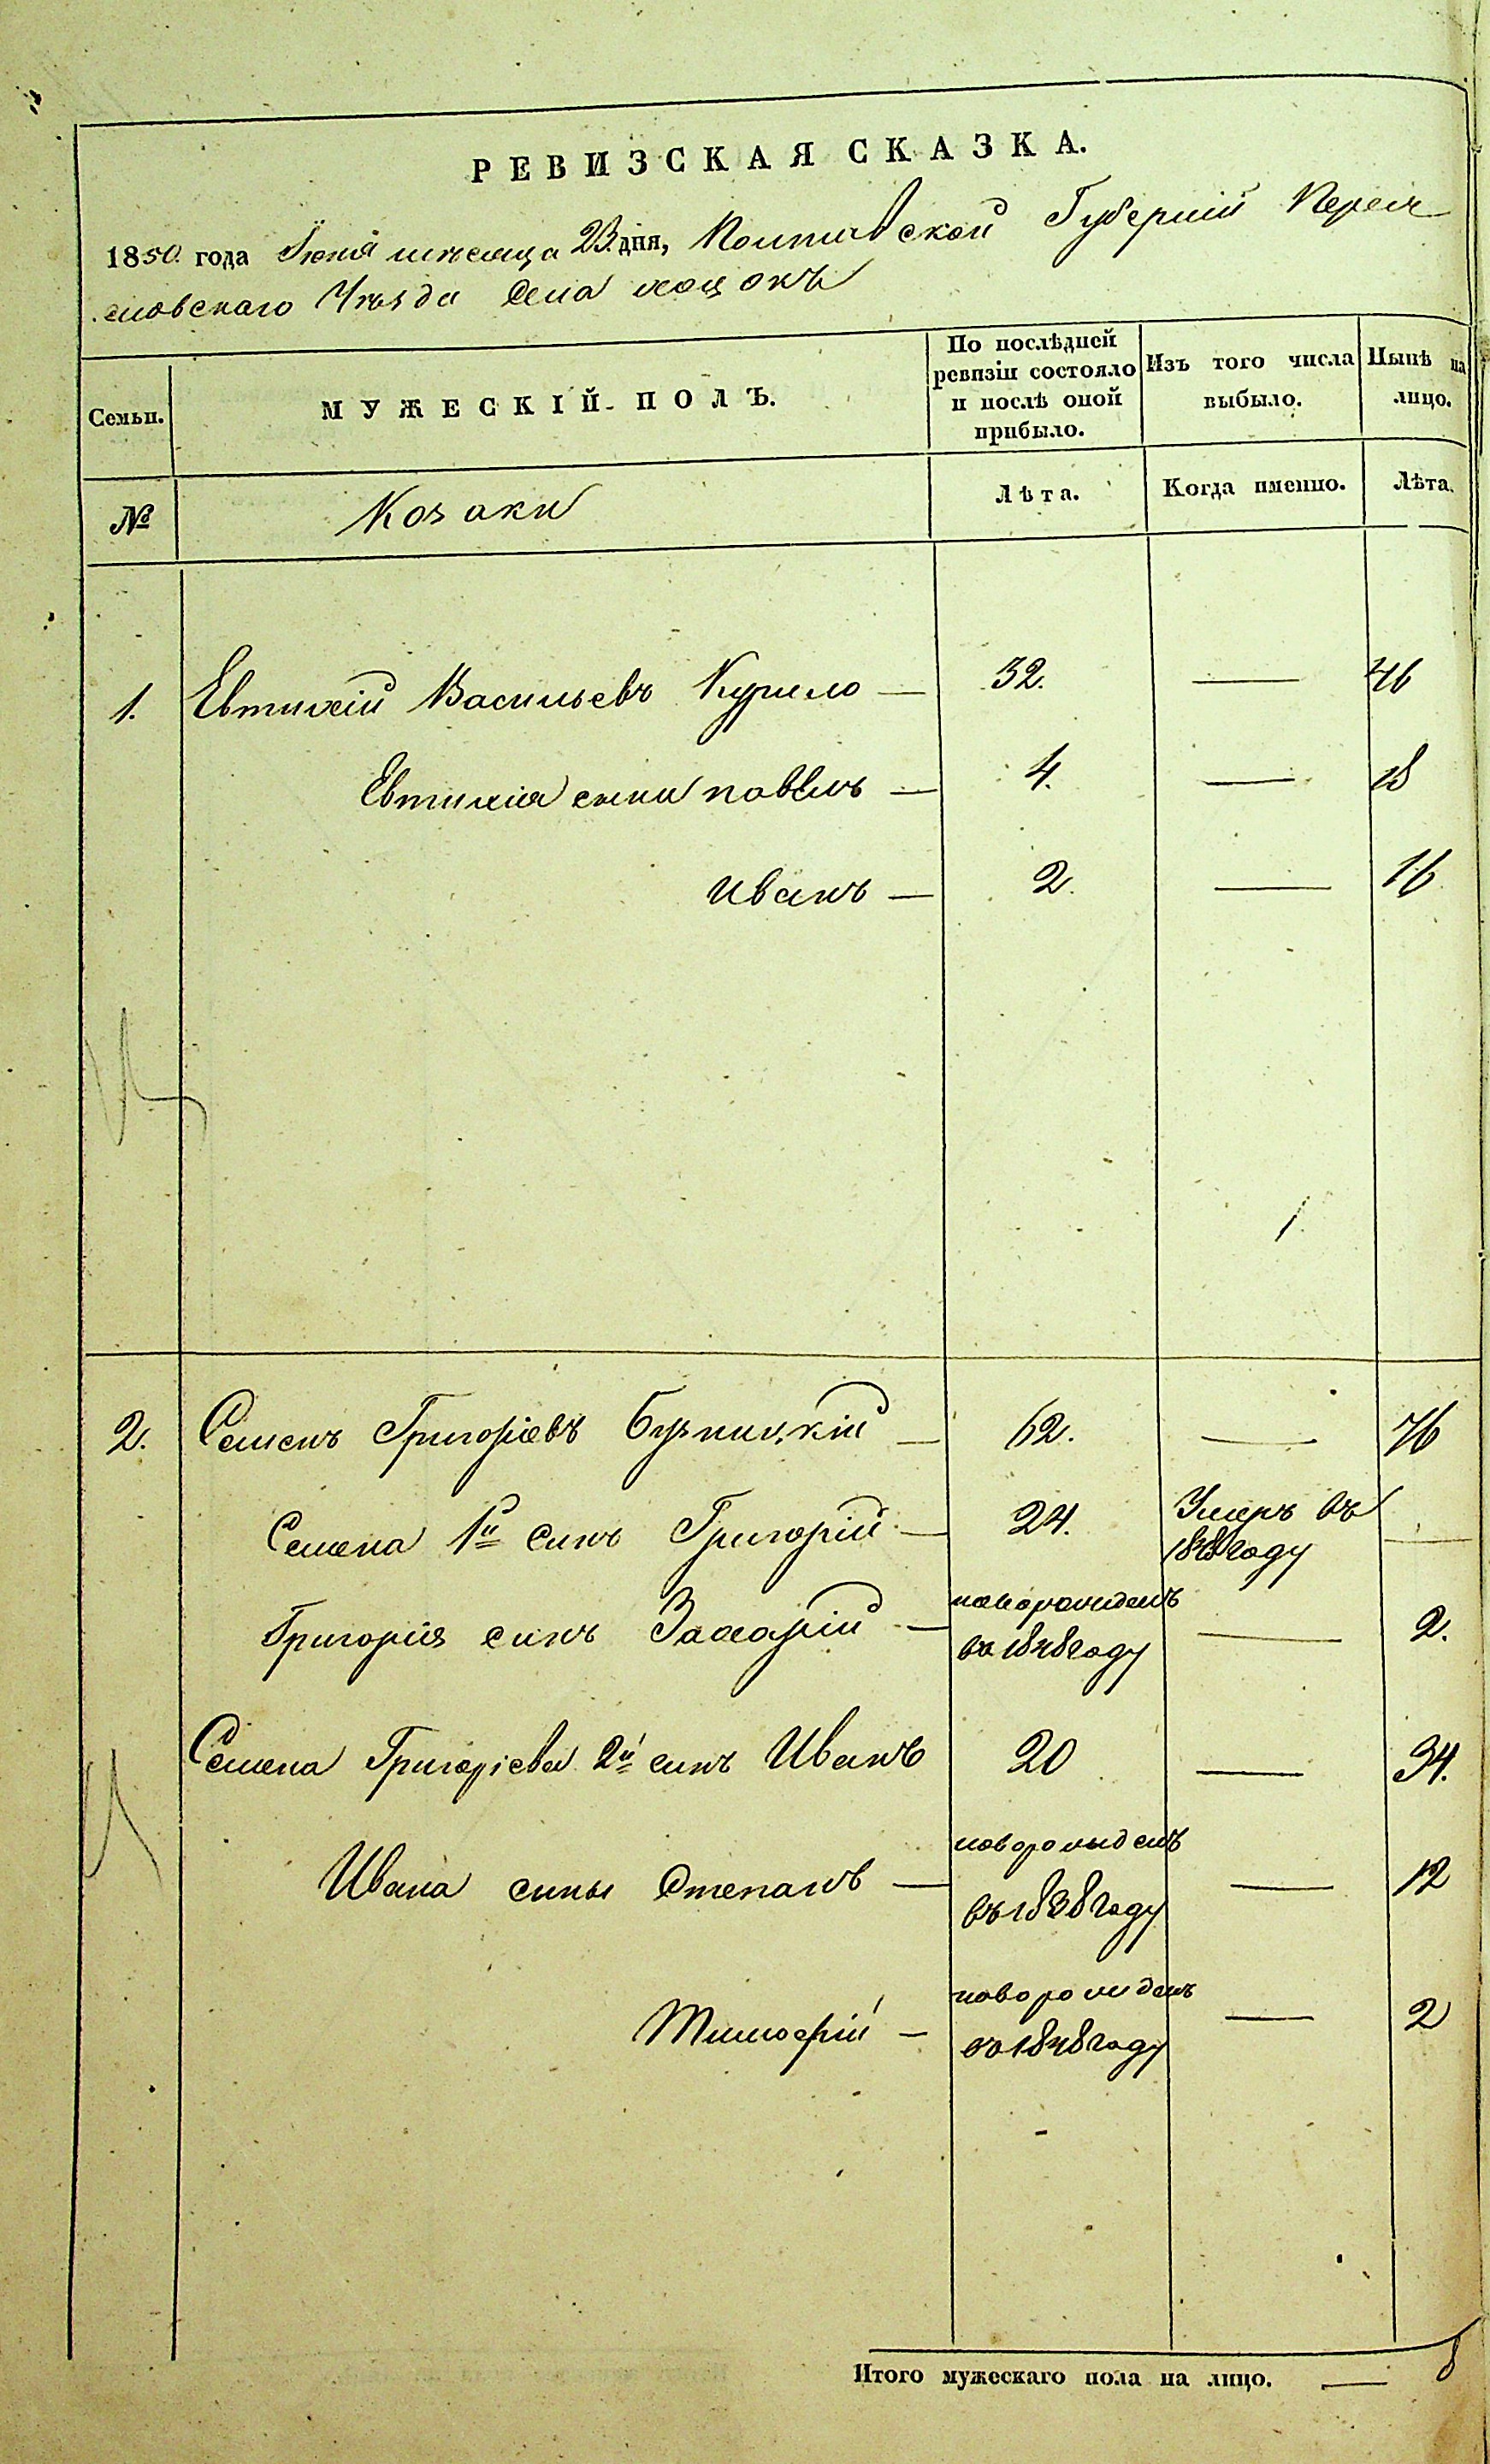 РЕВИЗСКАЯ СКАЗКА.
1850. года Іюня месяца 23. дня, Полтавской Губерніи Перея
славскаго Уезда Села хоцокъ
Семьи. МУЖЕСКІЙ ПОЛЪ. По послѣдней ревизіи состояло и послѣ оной прибыло. Изъ того числа выбыло. Нынѣ на лицо.
№ Козаки Лѣта. Когда именно. Лѣта.
1. Евтихій Васильевъ Курило — 32. — 46
Евтихія сыни павелъ — 4. — 18
иванъ — 2. — 16
2. Семенъ Григоріевъ — 62. — 76
Семена 1й синъ Григорій — 24. Умеръ въ 1848 году —
Григорія синъ Захарій — новорожденъ въ 1848 году — 2.
Семена Григоріева 2й синъ Иванъ 20 — 34.
Ивана сины Степанъ — новорожденъ въ 1838 году — 12
Тимофій — новорожденъ въ 1848 году — 2
Итого мужескаго пола на лицо. — 8